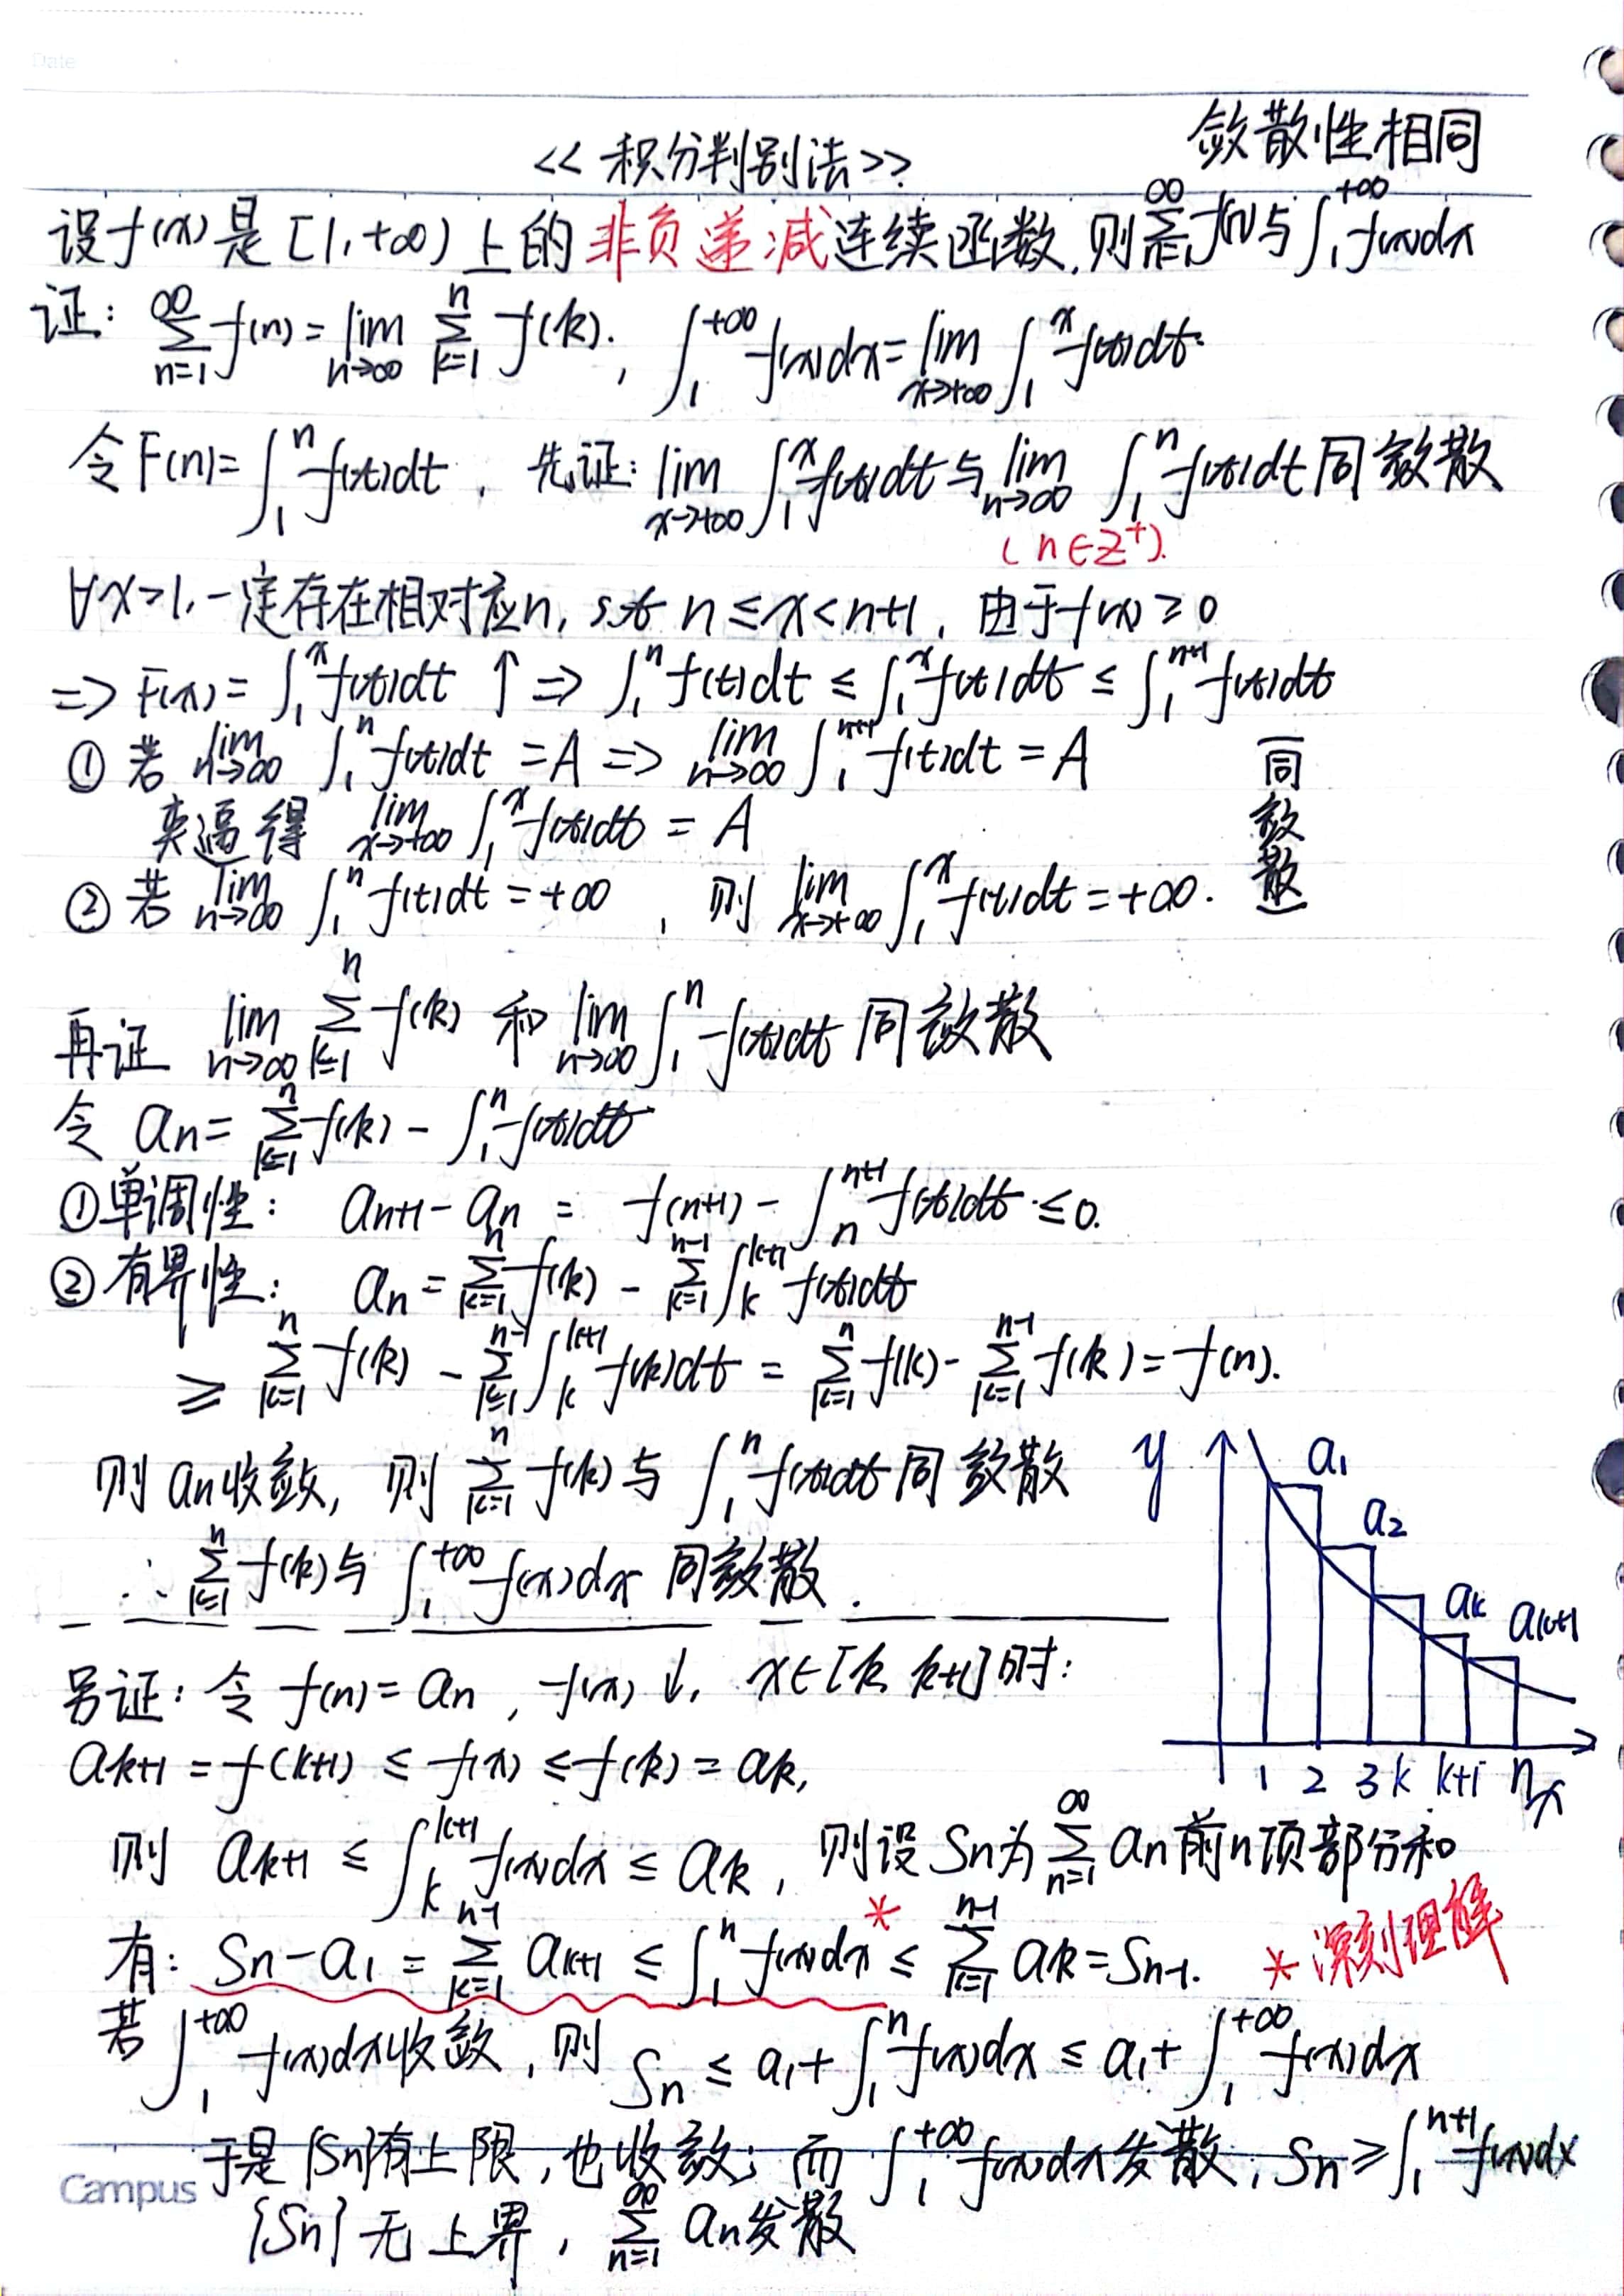 Date
敛散性相同
<<积分判别法>>
设f(x)是[1,+∞)上的非负递减连续函数,则∑_{n=1}^{∞}f(n)与∫_1^{+∞}f(x)dx
证: ∑_{n=1}^{∞}f(n)=lim_{n→∞}∑_{k=1}^{n}f(k). , ∫_1^{+∞}f(x)dx=lim_{x→+∞}∫_1^x f(t)dt.
令F(n)=∫_1^n f(t)dt , 先证: lim_{x→+∞}∫_1^x f(t)dt与lim_{n→∞}∫_1^n f(t)dt同敛散
(n∈Z⁺).
∀x>1,一定存在相对应n, s.t n≤x<n+1, 由于f(x)≥0
=> F(x)=∫_1^x f(t)dt ↑ => ∫_1^n f(t)dt ≤ ∫_1^x f(t)dt ≤ ∫_1^{n+1} f(t)dt
① 若 lim_{n→∞}∫_1^n f(t)dt = A => lim_{n→∞}∫_1^{n+1} f(t)dt = A
夹逼得 lim_{x→+∞}∫_1^x f(t)dt = A
② 若 lim_{n→∞}∫_1^n f(t)dt=+∞ , 则 lim_{x→+∞}∫_1^x f(t)dt=+∞.
同敛散
再证 lim_{n→∞}∑_{k=1}^{n}f(k) 和 lim_{n→∞}∫_1^n f(t)dt 同敛散
令 an=∑_{k=1}^{n}f(k)-∫_1^n f(t)dt
①单调性: an+1-an = f(n+1)-∫_n^{n+1}f(t)dt ≤0.
②有界性: an=∑_{k=1}^{n}f(k)-∑_{k=1}^{n-1}∫_k^{k+1}f(t)dt
≥ ∑_{k=1}^{n}f(k)-∑_{k=1}^{n-1}∫_k^{k+1}f(k)dt = ∑_{k=1}^{n}f(k)-∑_{k=1}^{n-1}f(k)=f(n).
则an收敛, 则∑_{k=1}^{n}f(k)与∫_1^n f(t)dt同敛散
∴ ∑_{k=1}^{n}f(k)与∫_1^{+∞}f(x)dx 同敛散.
y a1
a2
ak ak+1
1 2 3 k k+1 n x
另证: 令f(n)=an , f(x)↓, x∈[k, k+1]时:
ak+1=f(k+1)≤f(x)≤f(k)=ak,
则 ak+1≤∫_k^{k+1}f(x)dx≤ak, 则设Sn为∑_{n=1}^{∞}an前n项部分和
有: Sn-a1=∑_{k=1}^{n-1}ak+1≤∫_1^n f(x)dx * ≤∑_{k=1}^{n-1}ak=Sn-1. * 深刻理解
若∫_1^{+∞}f(x)dx收敛, 则 Sn≤a1+∫_1^n f(x)dx≤a1+∫_1^{+∞}f(x)dx
于是{Sn}有上限,也收敛; 而∫_1^{+∞}f(x)dx发散, Sn≥∫_1^{n+1}f(x)dx
{Sn}无上界, ∑_{n=1}^{∞}an发散
Campus